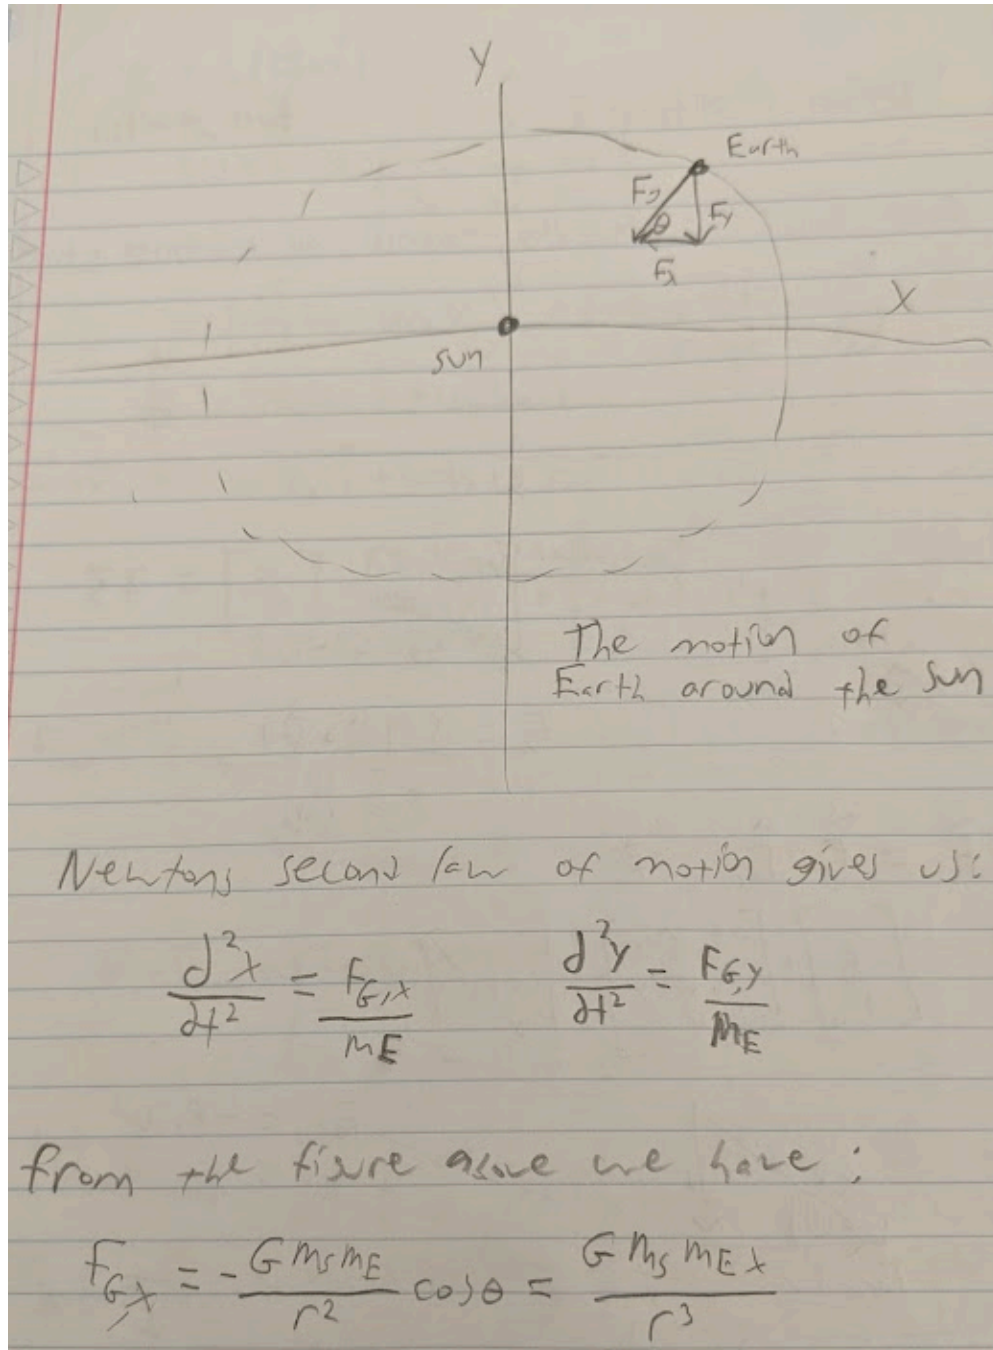 Y
Earth
Fg
θ
Fy
Fx
X
Sun
The motion of
Earth around the Sun
Newtons second law of motion gives us:
d²x/dt² = F_{G,x}/m_E    d²y/dt² = F_{G,y}/M_E
from the figure above we have:
F_{G,x} = -G m_s m_E/r² cosθ = G m_s m_E x/r³